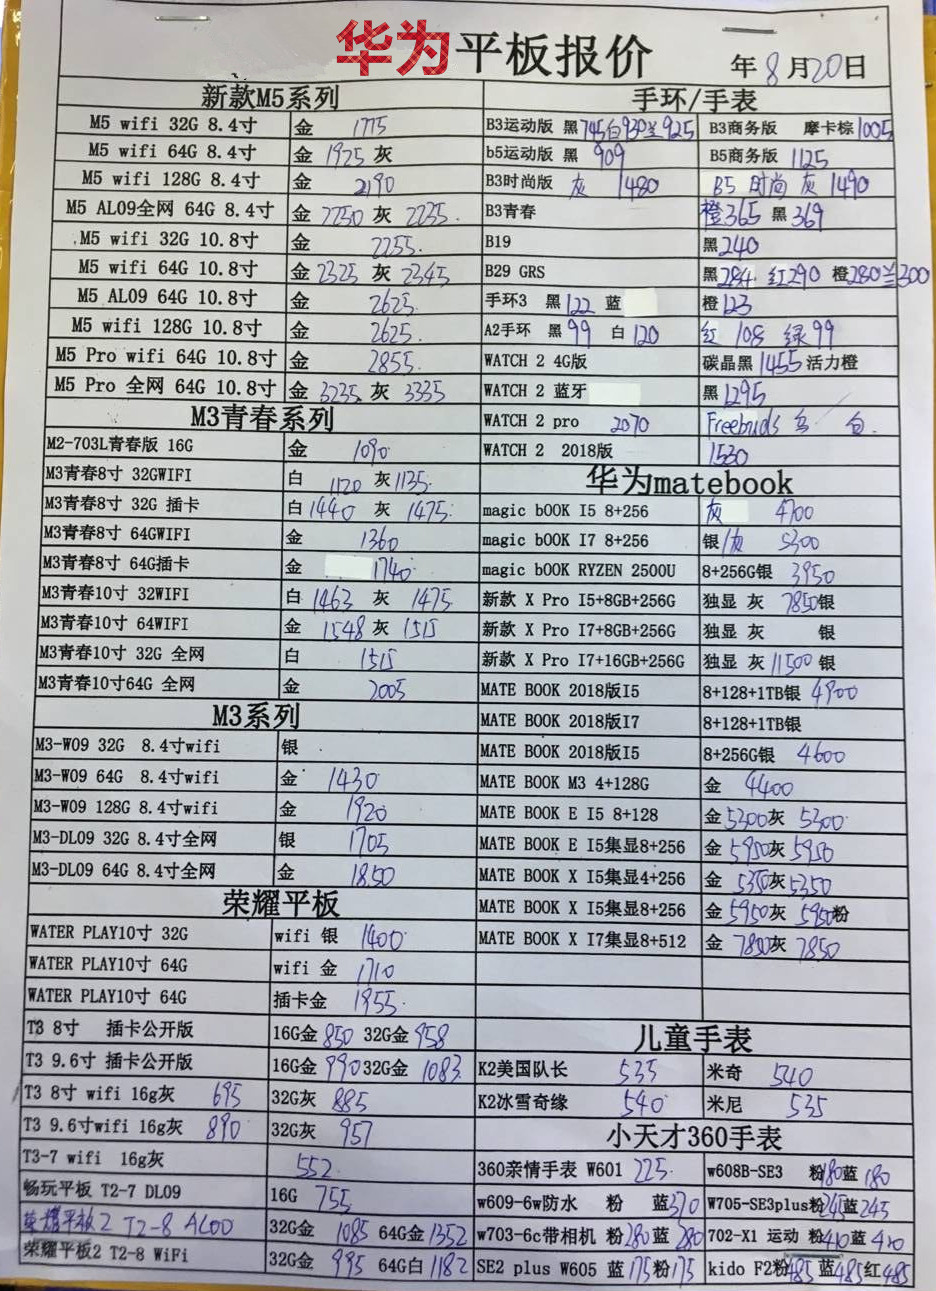 华为平板报价 年8月20日
新款M5系列
M5 wifi 32G 8.4寸 金 1775
M5 wifi 64G 8.4寸 金 1925 灰
M5 wifi 128G 8.4寸 金 2190
M5 AL09全网 64G 8.4寸 金 2250 灰 2235
M5 wifi 32G 10.8寸 金 2255
M5 wifi 64G 10.8寸 金 2325 灰 2345
M5 AL09 64G 10.8寸 金 2625
M5 wifi 128G 10.8寸 金 2625
M5 Pro wifi 64G 10.8寸 金 2855
M5 Pro 全网 64G 10.8寸 金 3235 灰 3335
M3青春系列
M2-703L青春版 16G 金 1090
M3青春8寸 32GWIFI 白 1120 灰 1135
M3青春8寸 32G 插卡 白 1440 灰 1475
M3青春8寸 64GWIFI 金 1360
M3青春8寸 64G插卡 金 1740
M3青春10寸 32WIFI 白 1463 灰 1475
M3青春10寸 64WIFI 金 1548 灰 1515
M3青春10寸 32G 全网 白 1515
M3青春10寸64G 全网 金 2005
M3系列
M3-W09 32G 8.4寸wifi 银
M3-W09 64G 8.4寸wifi 金 1430
M3-W09 128G 8.4寸wifi 金 1920
M3-DL09 32G 8.4寸全网 银 1705
M3-DL09 64G 8.4寸全网 金 1850
荣耀平板
WATER PLAY10寸 32G wifi 银 1400
WATER PLAY10寸 64G wifi 金 1710
WATER PLAY10寸 64G 插卡金 1955
T3 8寸 插卡公开版 16G金 850 32G金 958
T3 9.6寸 插卡公开版 16G金 990 32G金 1083
T3 8寸 wifi 16g灰 695 32G灰 885
T3 9.6寸wifi 16g灰 890 32G灰 957
T3-7 wifi 16g灰 552
畅玩平板 T2-7 DL09 16G 755
荣耀平板2 T2-8 AL00 32G金 1085 64G金 1352
荣耀平板2 T2-8 WiFi 32G金 995 64G白 1182
手环/手表
B3运动版 黑 745 白 930 兰 925 B3商务版 摩卡棕 1005
b5运动版 黑 909 B5商务版 1125
B3时尚版 灰 1480 B5 时尚 灰 1490
B3青春 橙 365 黑 369
B19 黑 240
B29 GRS 黑 284 红 290 橙 280 兰 300
手环3 黑 122 蓝 橙 123
A2手环 黑 99 白 120 红 108 绿 99
WATCH 2 4G版 碳晶黑 1455 活力橙
WATCH 2 蓝牙 黑 1295
WATCH 2 pro 2070 Freebuds 白
WATCH 2 2018版 1530
华为matebook
magic bOOK I5 8+256 灰 4700
magic bOOK I7 8+256 银/灰 5300
magic bOOK RYZEN 2500U 8+256G银 3950
新款 X Pro I5+8GB+256G 独显 灰 7850 银
新款 X Pro I7+8GB+256G 独显 灰 银
新款 X Pro I7+16GB+256G 独显 灰 11500 银
MATE BOOK 2018版I5 8+128+1TB银 4900
MATE BOOK 2018版I7 8+128+1TB银
MATE BOOK 2018版I5 8+256G银 4600
MATE BOOK M3 4+128G 金 4400
MATE BOOK E I5 8+128 金 5300 灰 5300
MATE BOOK E I5集显8+256 金 5950 灰 5950
MATE BOOK X I5集显4+256 金 5350 灰 5350
MATE BOOK X I5集显8+256 金 5950 灰 5950 粉
MATE BOOK X I7集显8+512 金 7850 灰 7850
儿童手表
K2美国队长 535 米奇 540
K2冰雪奇缘 540 米尼 535
小天才360手表
360亲情手表 W601 225 w608B-SE3 粉 180 蓝 180
w609-6w防水 粉 蓝 270 W705-SE3plus粉 245 蓝 245
w703-6c带相机 粉 280 蓝 280 702-X1 运动 粉 410 蓝 410
SE2 plus W605 蓝 175 粉 175 kido F2粉 485 蓝 485 红 485